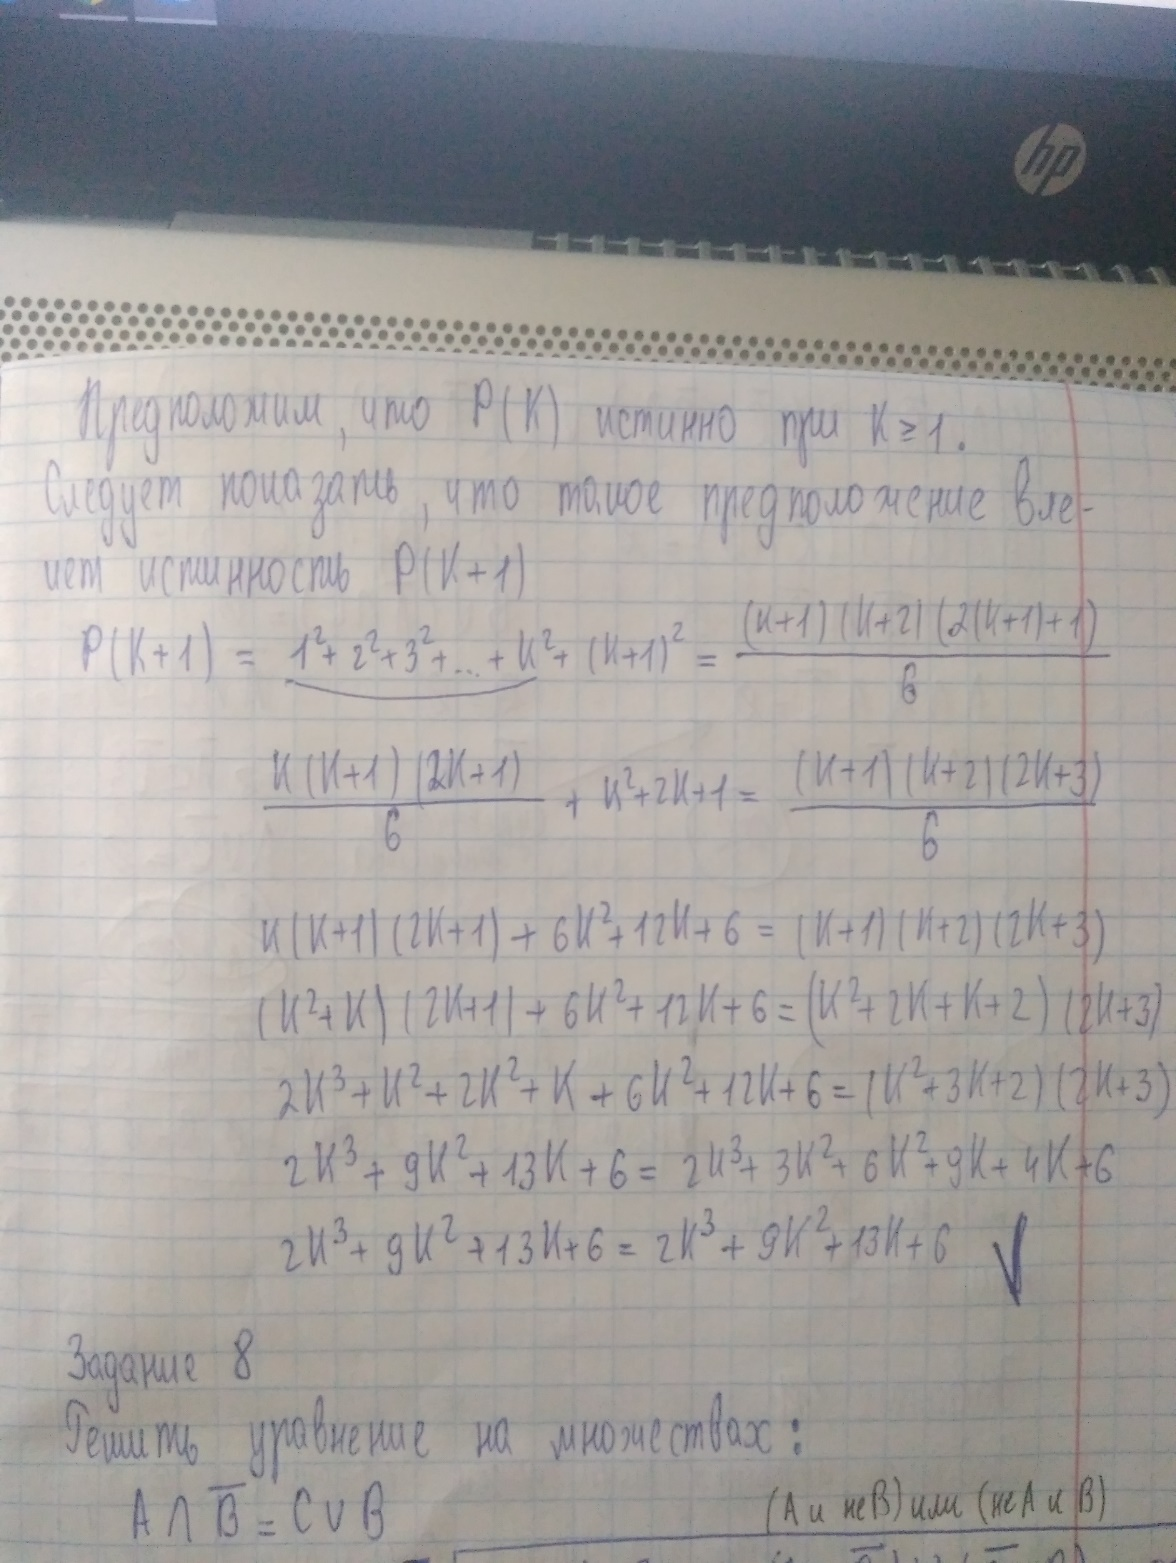 hp
Предположим, что P(K) истинно при K ≥ 1.
Следует показать, что такое предположение вле-
чет истинность P(K+1)
P(K+1) = 1²+2²+3²+...+K²+(K+1)² = (K+1)(K+2)(2(K+1)+1)/6
K(K+1)(2K+1)/6 + K²+2K+1 = (K+1)(K+2)(2K+3)/6
K(K+1)(2K+1)+6K²+12K+6 = (K+1)(K+2)(2K+3)
(K²+K)(2K+1)+6K²+12K+6=(K²+2K+K+2)(2K+3)
2K³+K²+2K²+K+6K²+12K+6=(K²+3K+2)(2K+3)
2K³+9K²+13K+6= 2K³+3K²+6K²+9K+4K+6
2K³+9K²+13K+6= 2K³+9K²+13K+6 √
Задание 8
Решить уравнение на множествах:
A∩B̅ = C∪B
(A и не B) или (не A и B)